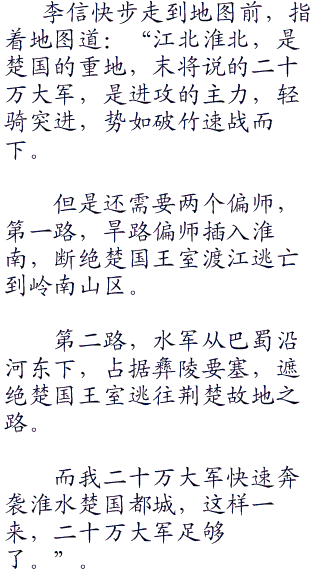 李信快步走到地图前，指
着地图道：“江北淮北，是
楚国的重地，末将说的二十
万大军，是进攻的主力，轻
骑突进，势如破竹速战而
下。
但是还需要两个偏师，
第一路，旱路偏师插入淮
南，断绝楚国王室渡江逃亡
到岭南山区。
第二路，水军从巴蜀沿
河东下，占据彝陵要塞，遮
绝楚国王室逃往荆楚故地之
路。
而我二十万大军快速奔
袭淮水楚国都城，这样一
来，二十万大军足够
了。”。